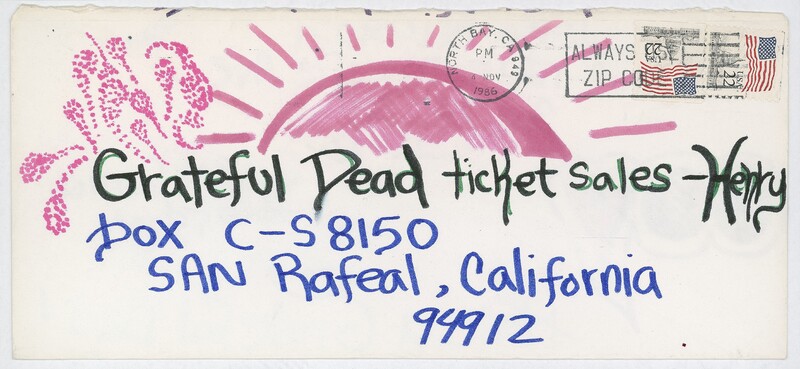 NORTH BAY, CA 949
PM
4 NOV
1986
ALWAYS USE
ZIP CODE
USA 22
USA 22
Grateful Dead ticket sales - Henry
box C-S 8150
SAN Rafeal, California
94912